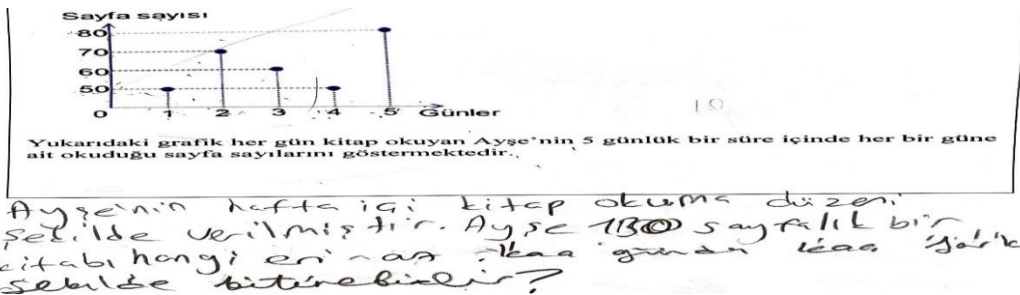 Sayfa sayısı
80
70
60
50
0 1 2 3 4 5 Günler
10
Yukarıdaki grafik her gün kitap okuyan Ayşe'nin 5 günlük bir süre içinde her bir güne
ait okuduğu sayfa sayılarını göstermektedir.
Ayşe'nin hafta içi kitap okuma düzeni
şekilde verilmiştir. Ayşe 130 sayfalık bir
kitabı hangi en az kaç günde kaç farklı
şekilde bitirebilir?